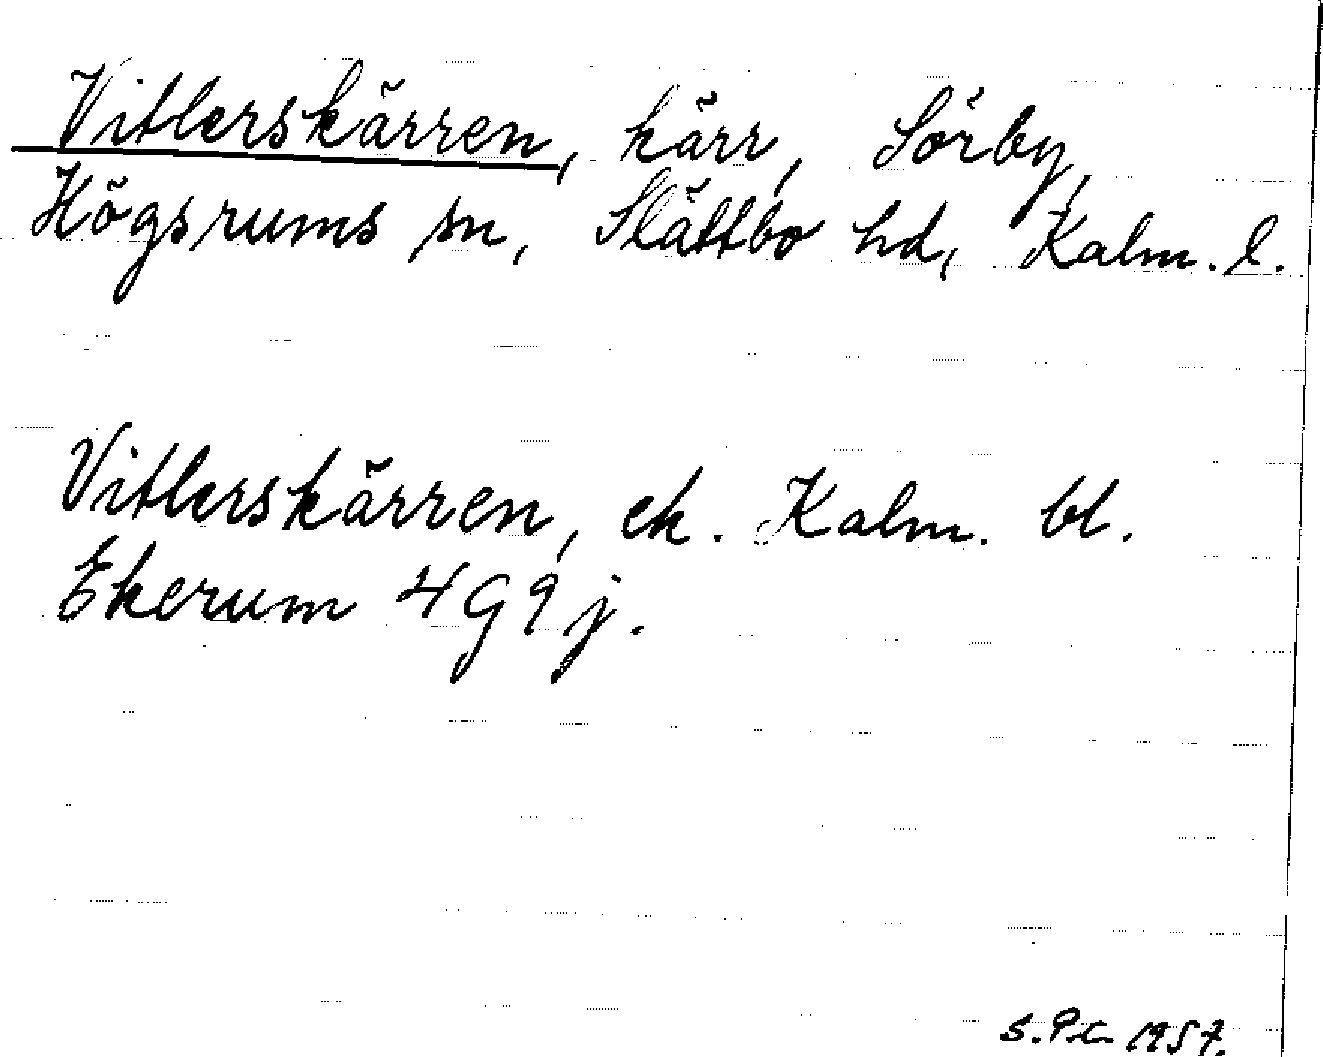 Vitlerskärren, kärr, Sörby,
Högsrums sn, Slättbo hd, Kalm. l.
Vitlerskärren, ek. Kalm. bl.
Ekerum 4G9j.
1957.